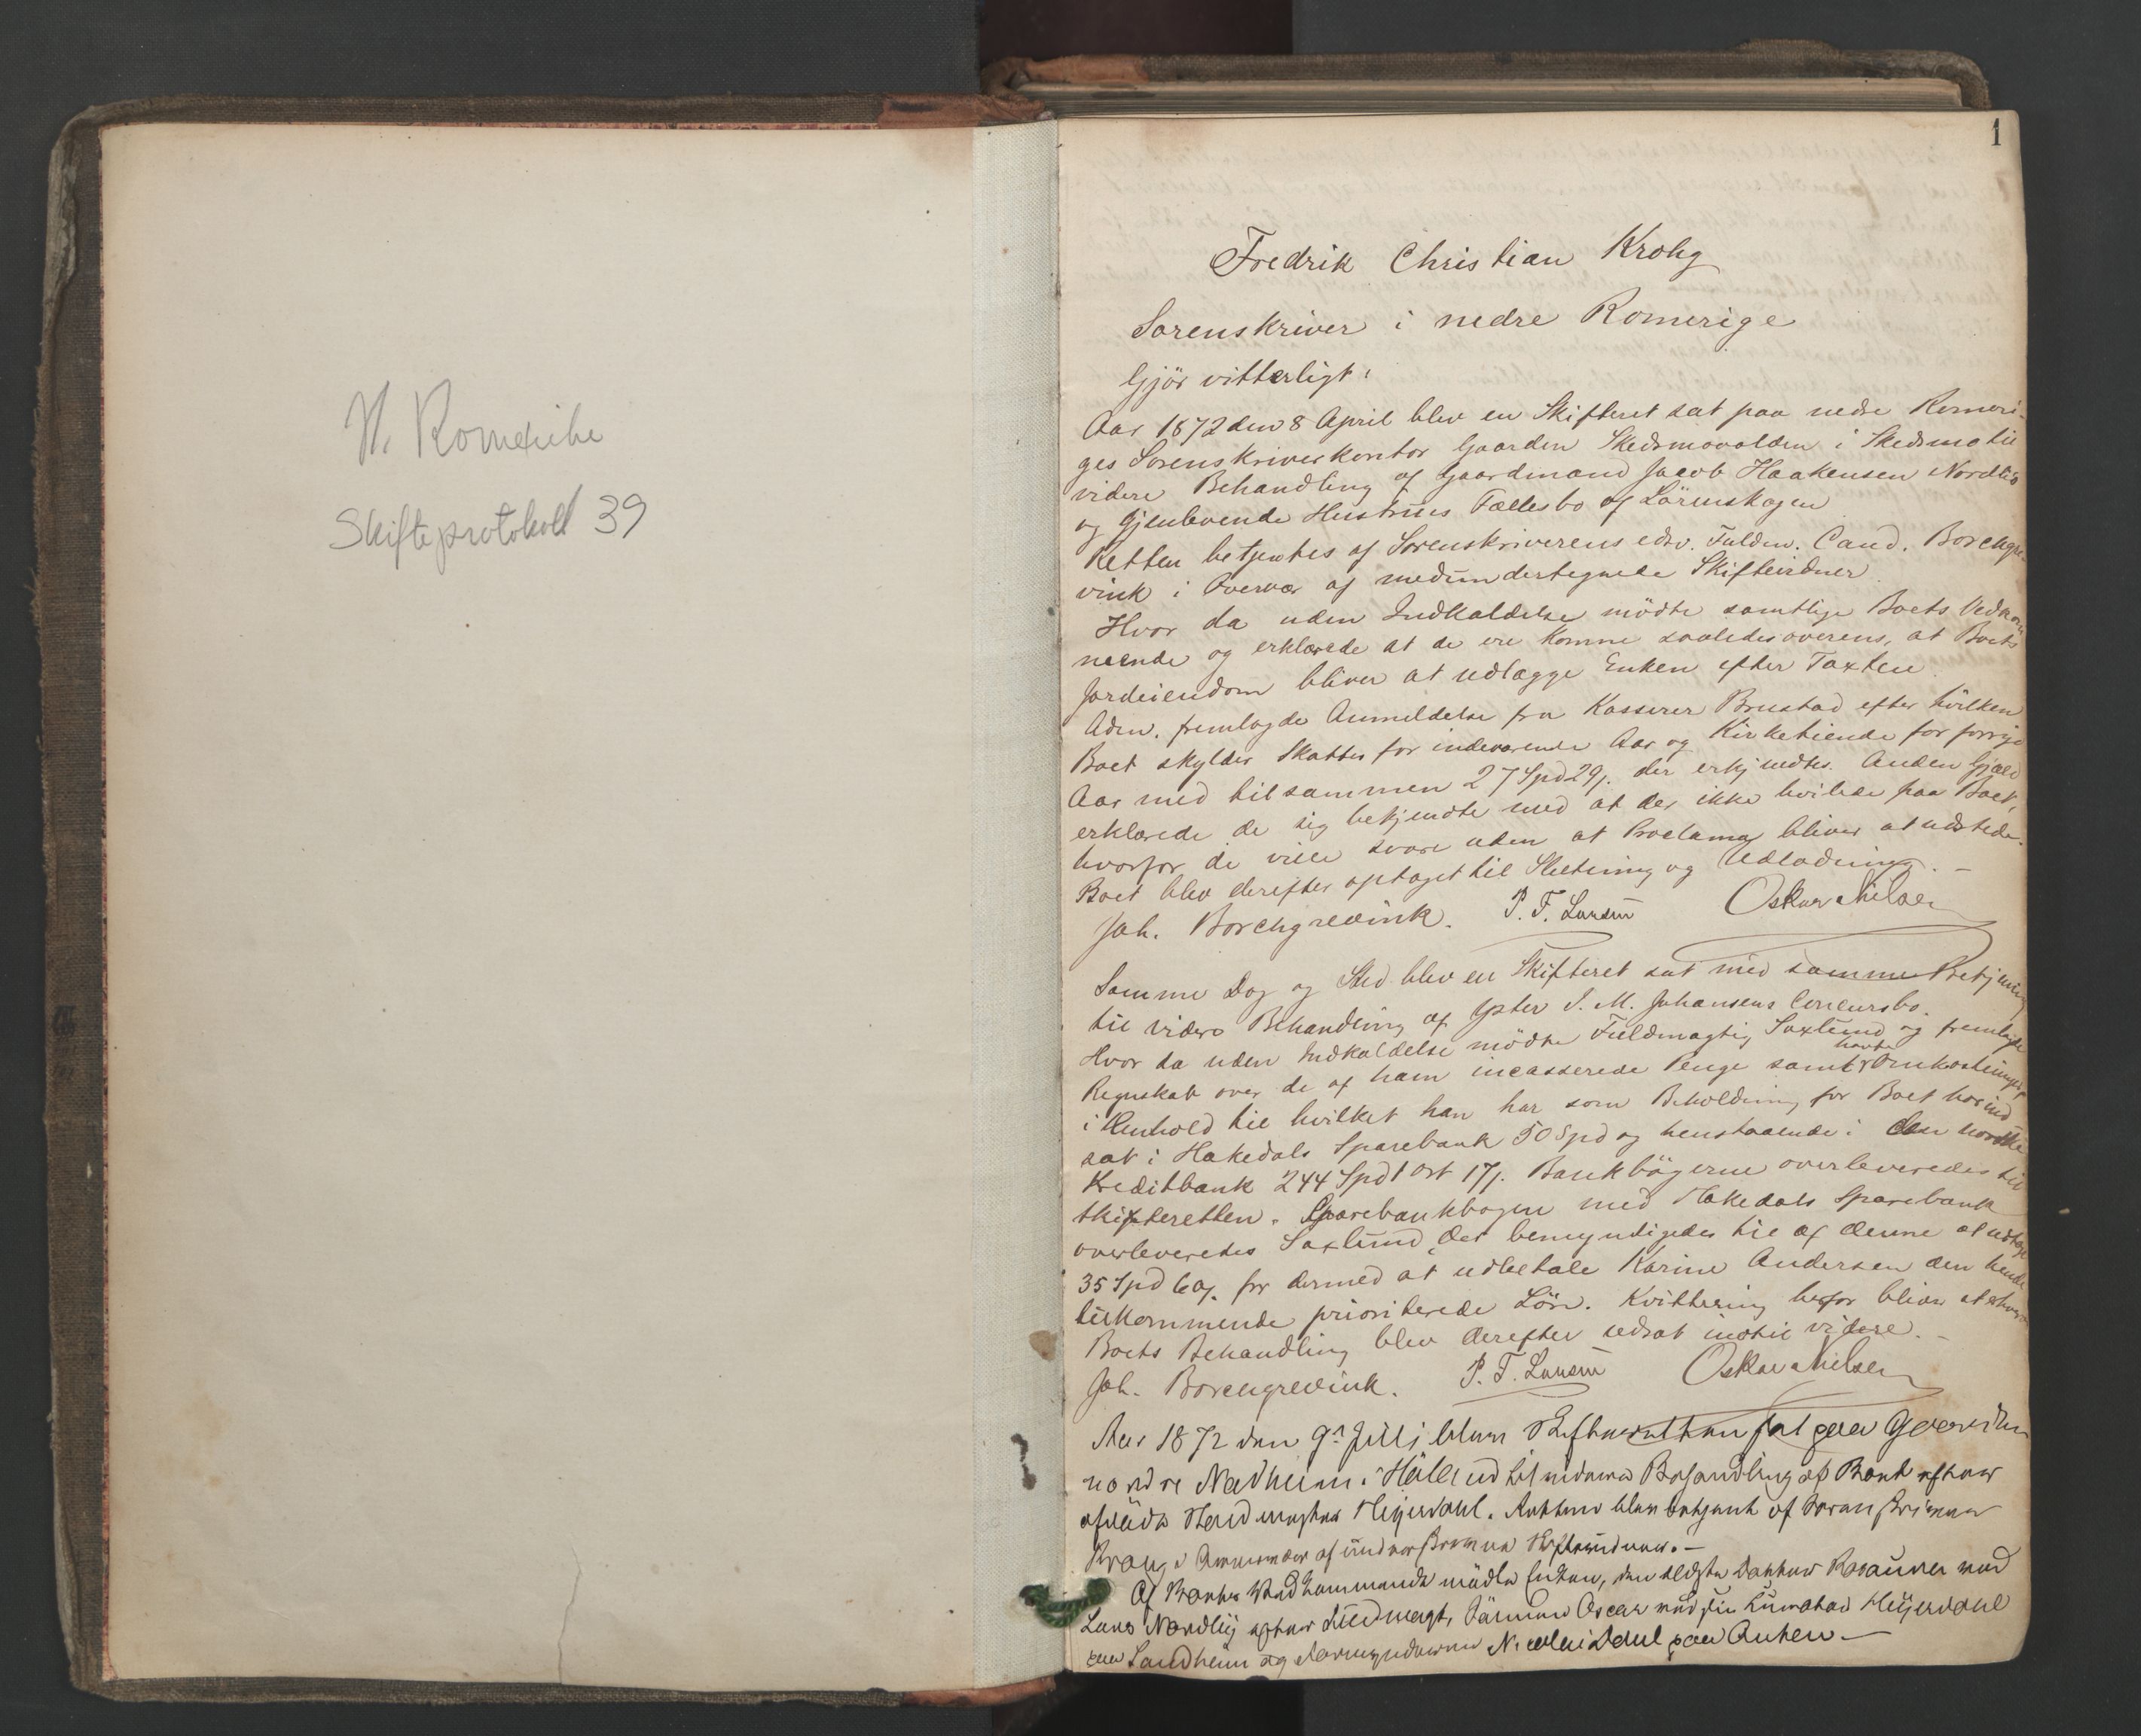 N. Romerike
Skifteprotokoll 39
1
Fredrik Christian Krohg
Sorenskriver i nedre Romerige
Gjör vitterligt:
Aar 1872 den 8 April blev en Skifteret sat paa nedre Romeri-
ges Sorenskriverkontor Gaarden Skedsmovolden i Skedsmo til
videre Behandling af Gaardmand Jacob Haakensen Nordlis
og gjenlevende Hustrues Fællesbo af Lörenskogen
Retten betjentes af Sorenskriverens edsv. Fuldm. Cand. Borchgre-
vink i Overvær af medundertegnede Skiftevidner.
Hvor da uden Indkaldelse mödte samtlige Boets Vedkom
mende og erklærede at de ere komne saaledes overens, at Boets
Jordeiendom bliver at udlægge Enken efter Taxten.
Adm. fremlagde Anmeldelse fra Kasserer Brustad efter hvilken
Boet skylder Skatter for indeværende Aar og Kirketiende for forrige
Aar med tilsammen 27 Spd 29 s. der erkjendtes. Anden Gjæld
erklærede de sig bekjendte med at der ikke hvilede paa Boet,
hvorfor de ville svare uden at Proclama bliver at udstede.
Boet blev derefter optaget til Slutning og Udlodning. –
Joh. Borchgrevink. P. T. Larsen Oskar Nielsen
Samme Dag og Sted blev en Skifteret sat med samme Betjening
til videre Behandling af J. M. Johansens Concursbo.
Hvor da uden Indkaldelse mödte Fuldmægtig Saxlund og fremlagde
Regnskab over de af ham incasserede Penge samt havte Omkostninger,
i Henhold til hvilket han har som Beholdning for Boet har ind
sat i Hakedals Sparebank 50 Spd og henstaaende i den norske
Kreditbank 244 Spd 1 Ort 17 s. Bankbögerne overleveredes til
Skifteretten. Sparebankbogen med Hakedals Sparebank
overleveredes Saxlund, der bemyndigedes til af denne at udtage
35 Spd 60 s. for dermed at udbetale Karine Andersen den hende
tilkommende prioriterede Lön. Kvittering herfor bliver at erhverve
Boets Behandling blev derefter udsat indtil videre. –
Joh. Borchgrevink. P. T. Larsen Oskar Nielsen
Aar 1872 den 9de Juli blev Skifteretten sat paa Gaarden
nordre i Höland til videre Behandling af Boet efter
afdöde Meyerdahl. Retten blev betjent af Sorenskriver
Krohg i Overvær af underskrevne Skiftevidner. –
Af Boets Vedkommende mödte Enken, den ældste Datter med
Lars Nordlij efter Fuldmagt, Sönnen Oscar med sin Kurator Meyerdahl
paa Sandheim og Formynderen Nicolai Dahl paa Anken –